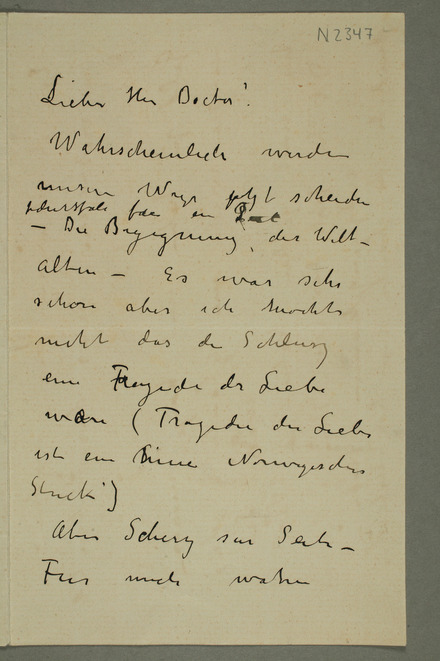 N2347
Lieber Herr Doctor!
Wahrscheinlich werden
unsere Wege jetzt scheiden
ein
– Die Begegnung der Welt–
alten – Es war sehr
schön aber ich mochte
nicht das der Schlusz
eine Tragedie der Liebe
ware (Tragedie der Liebe
ist ein Norwegisches
Stück)
Aber Scherz zur Seite –
Fur mich waren